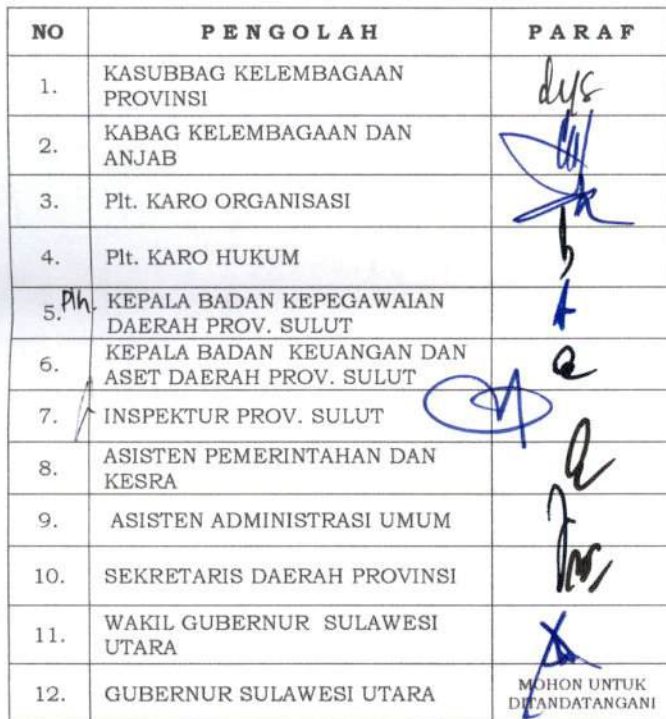 NO PENGOLAH PARAF
1. KASUBBAG KELEMBAGAAN
PROVINSI
2. KABAG KELEMBAGAAN DAN
ANJAB
3. Plt. KARO ORGANISASI
4. Plt. KARO HUKUM
5. Plh. KEPALA BADAN KEPEGAWAIAN
DAERAH PROV. SULUT
6. KEPALA BADAN KEUANGAN DAN
ASET DAERAH PROV. SULUT
7. INSPEKTUR PROV. SULUT
8. ASISTEN PEMERINTAHAN DAN
KESRA
9. ASISTEN ADMINISTRASI UMUM
10. SEKRETARIS DAERAH PROVINSI
11. WAKIL GUBERNUR SULAWESI
UTARA
12. GUBERNUR SULAWESI UTARA
MOHON UNTUK
DITANDATANGANI